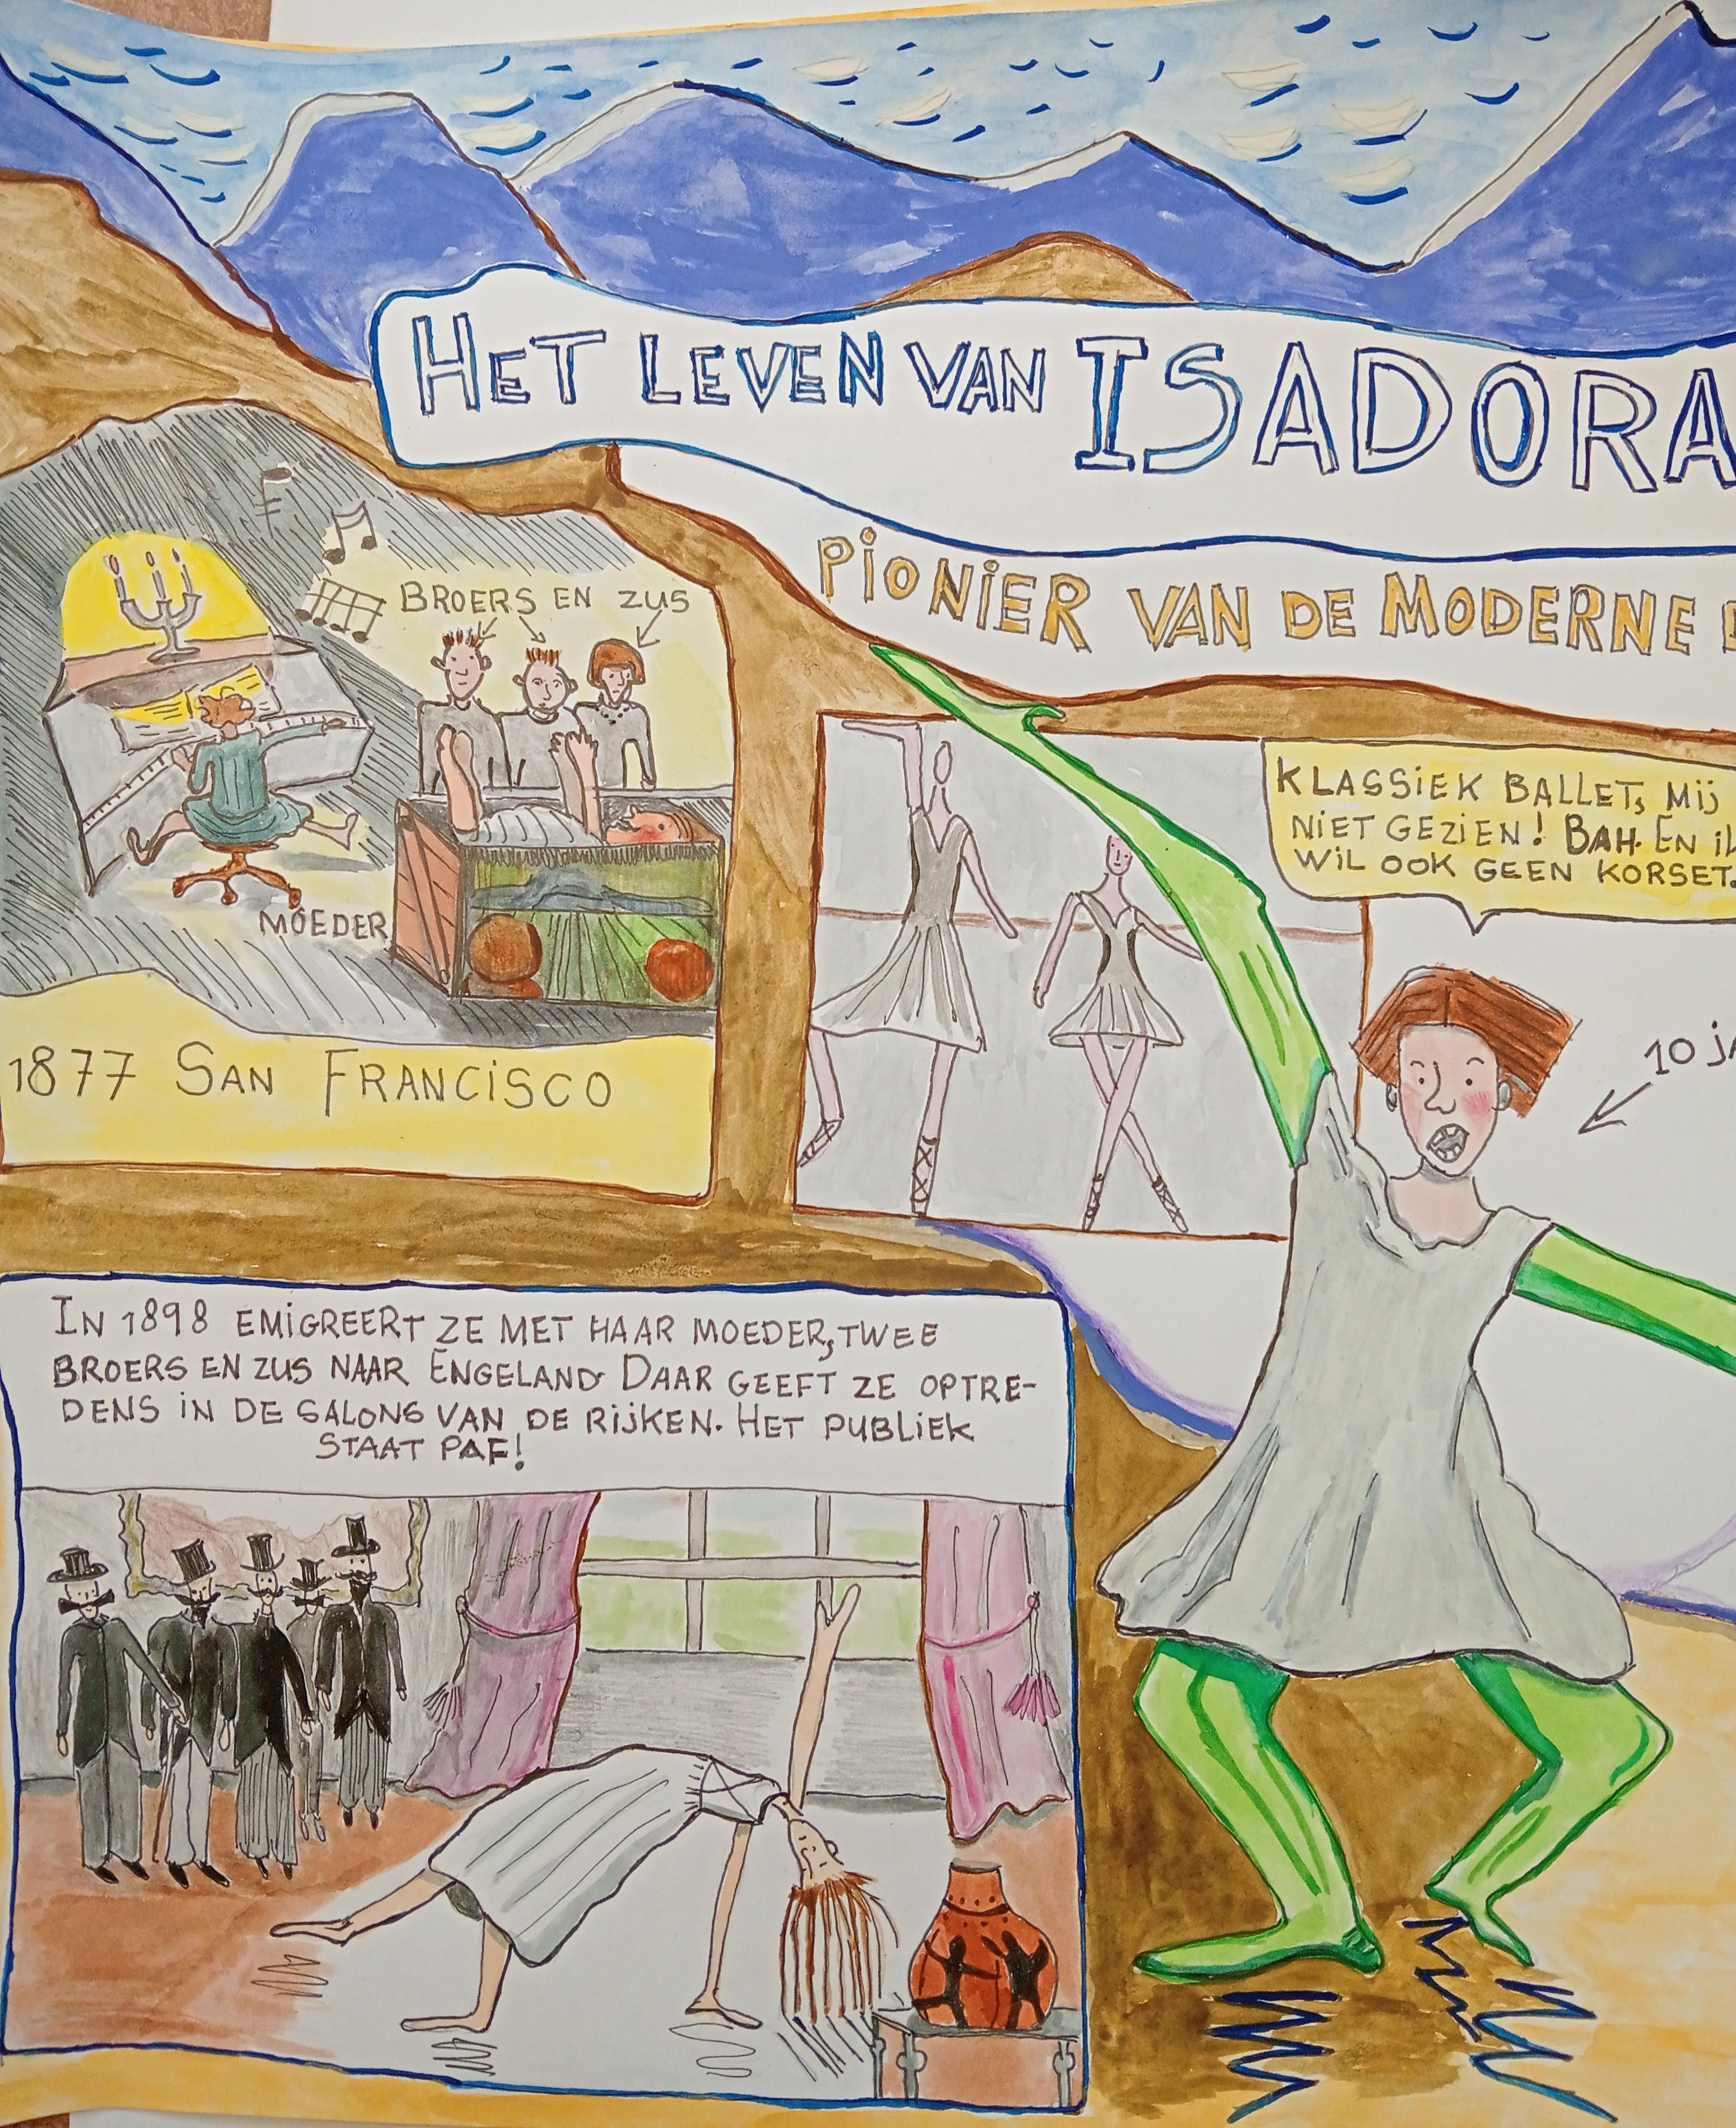 HET LEVEN VAN ISADORA
PIONIER VAN DE MODERNE
BROERS EN ZUS
MOEDER
1877 SAN FRANCISCO
KLASSIEK BALLET, MIJ
NIET GEZIEN! BAH. EN
WIL OOK GEEN KORSET.
10
IN 1898 EMIGREERT ZE MET HAAR MOEDER, TWEE
BROERS EN ZUS NAAR ENGELAND. DAAR GEEFT ZE OPTRE-
DENS IN DE SALONS VAN DE RIJKEN. HET PUBLIEK
STAAT PAF!